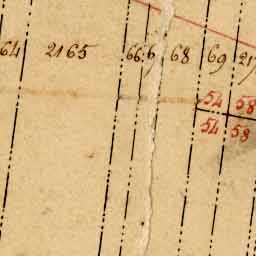 64 2165 66 6 68 69 217
54 58
54 58